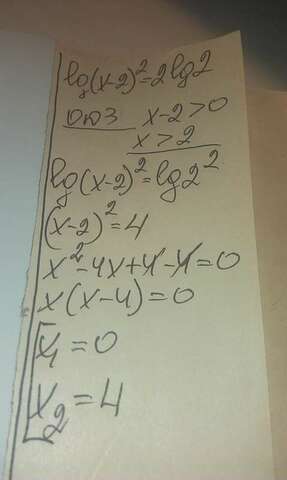 lg(x-2)²=2lg2
ОЮЗ x-2>0
x>2
lg(x-2)²=lg2²
(x-2)²=4
x²-4x+4-4=0
x(x-4)=0
[x₁=0
x₂=4